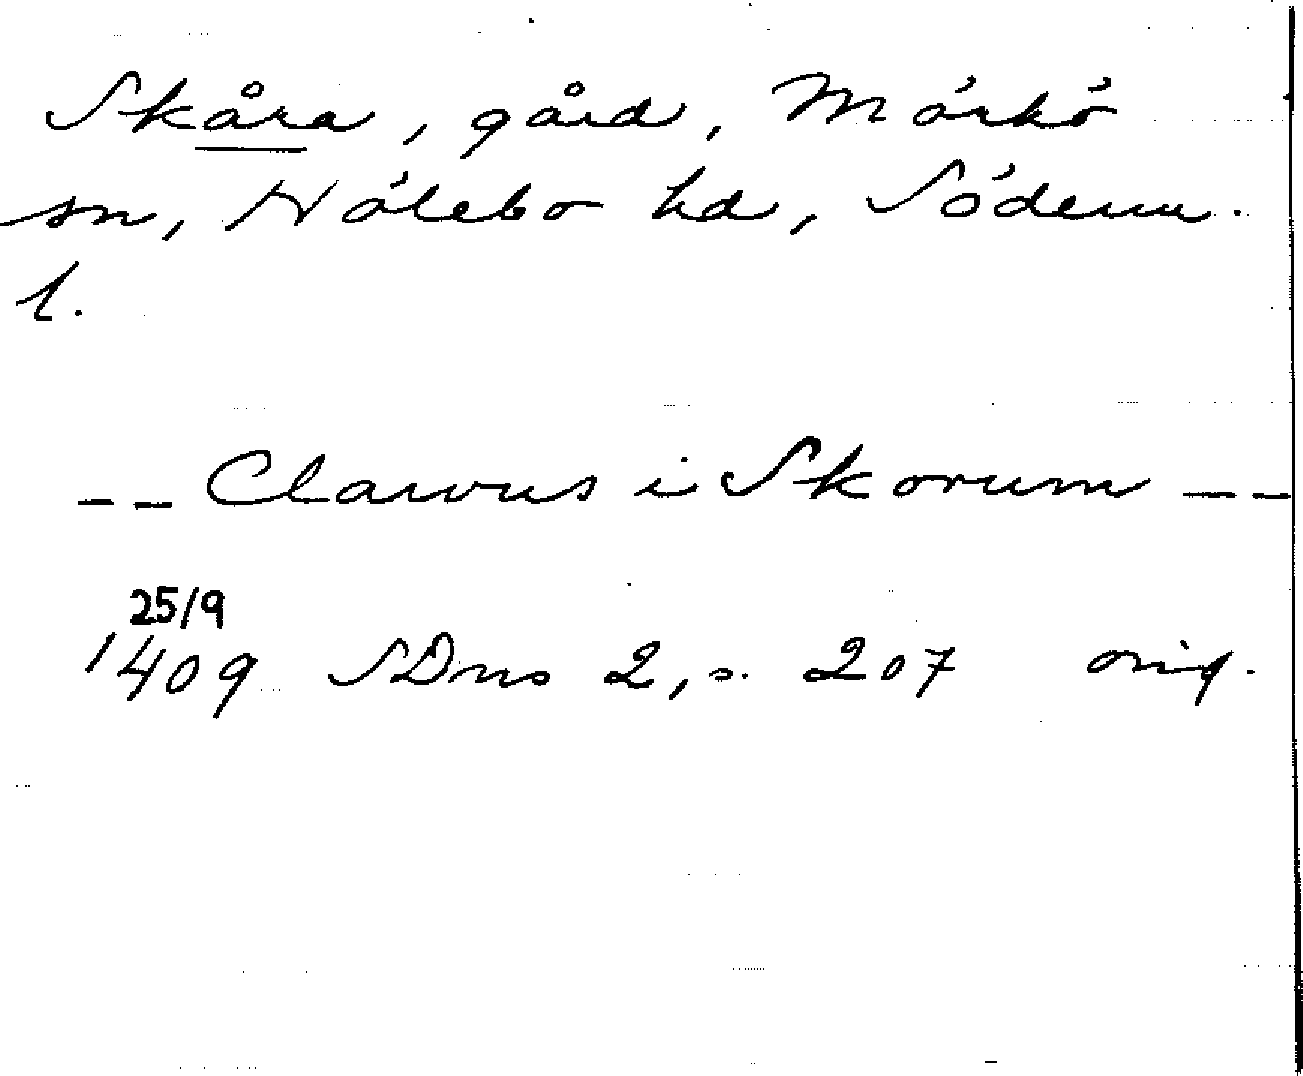 Skåra, gård, Mörkö
sn, Hölebo hd, Söderm.
l.
-- Clawus i Skorum --
25/9
1409 SDns 2, s. 207 orig.